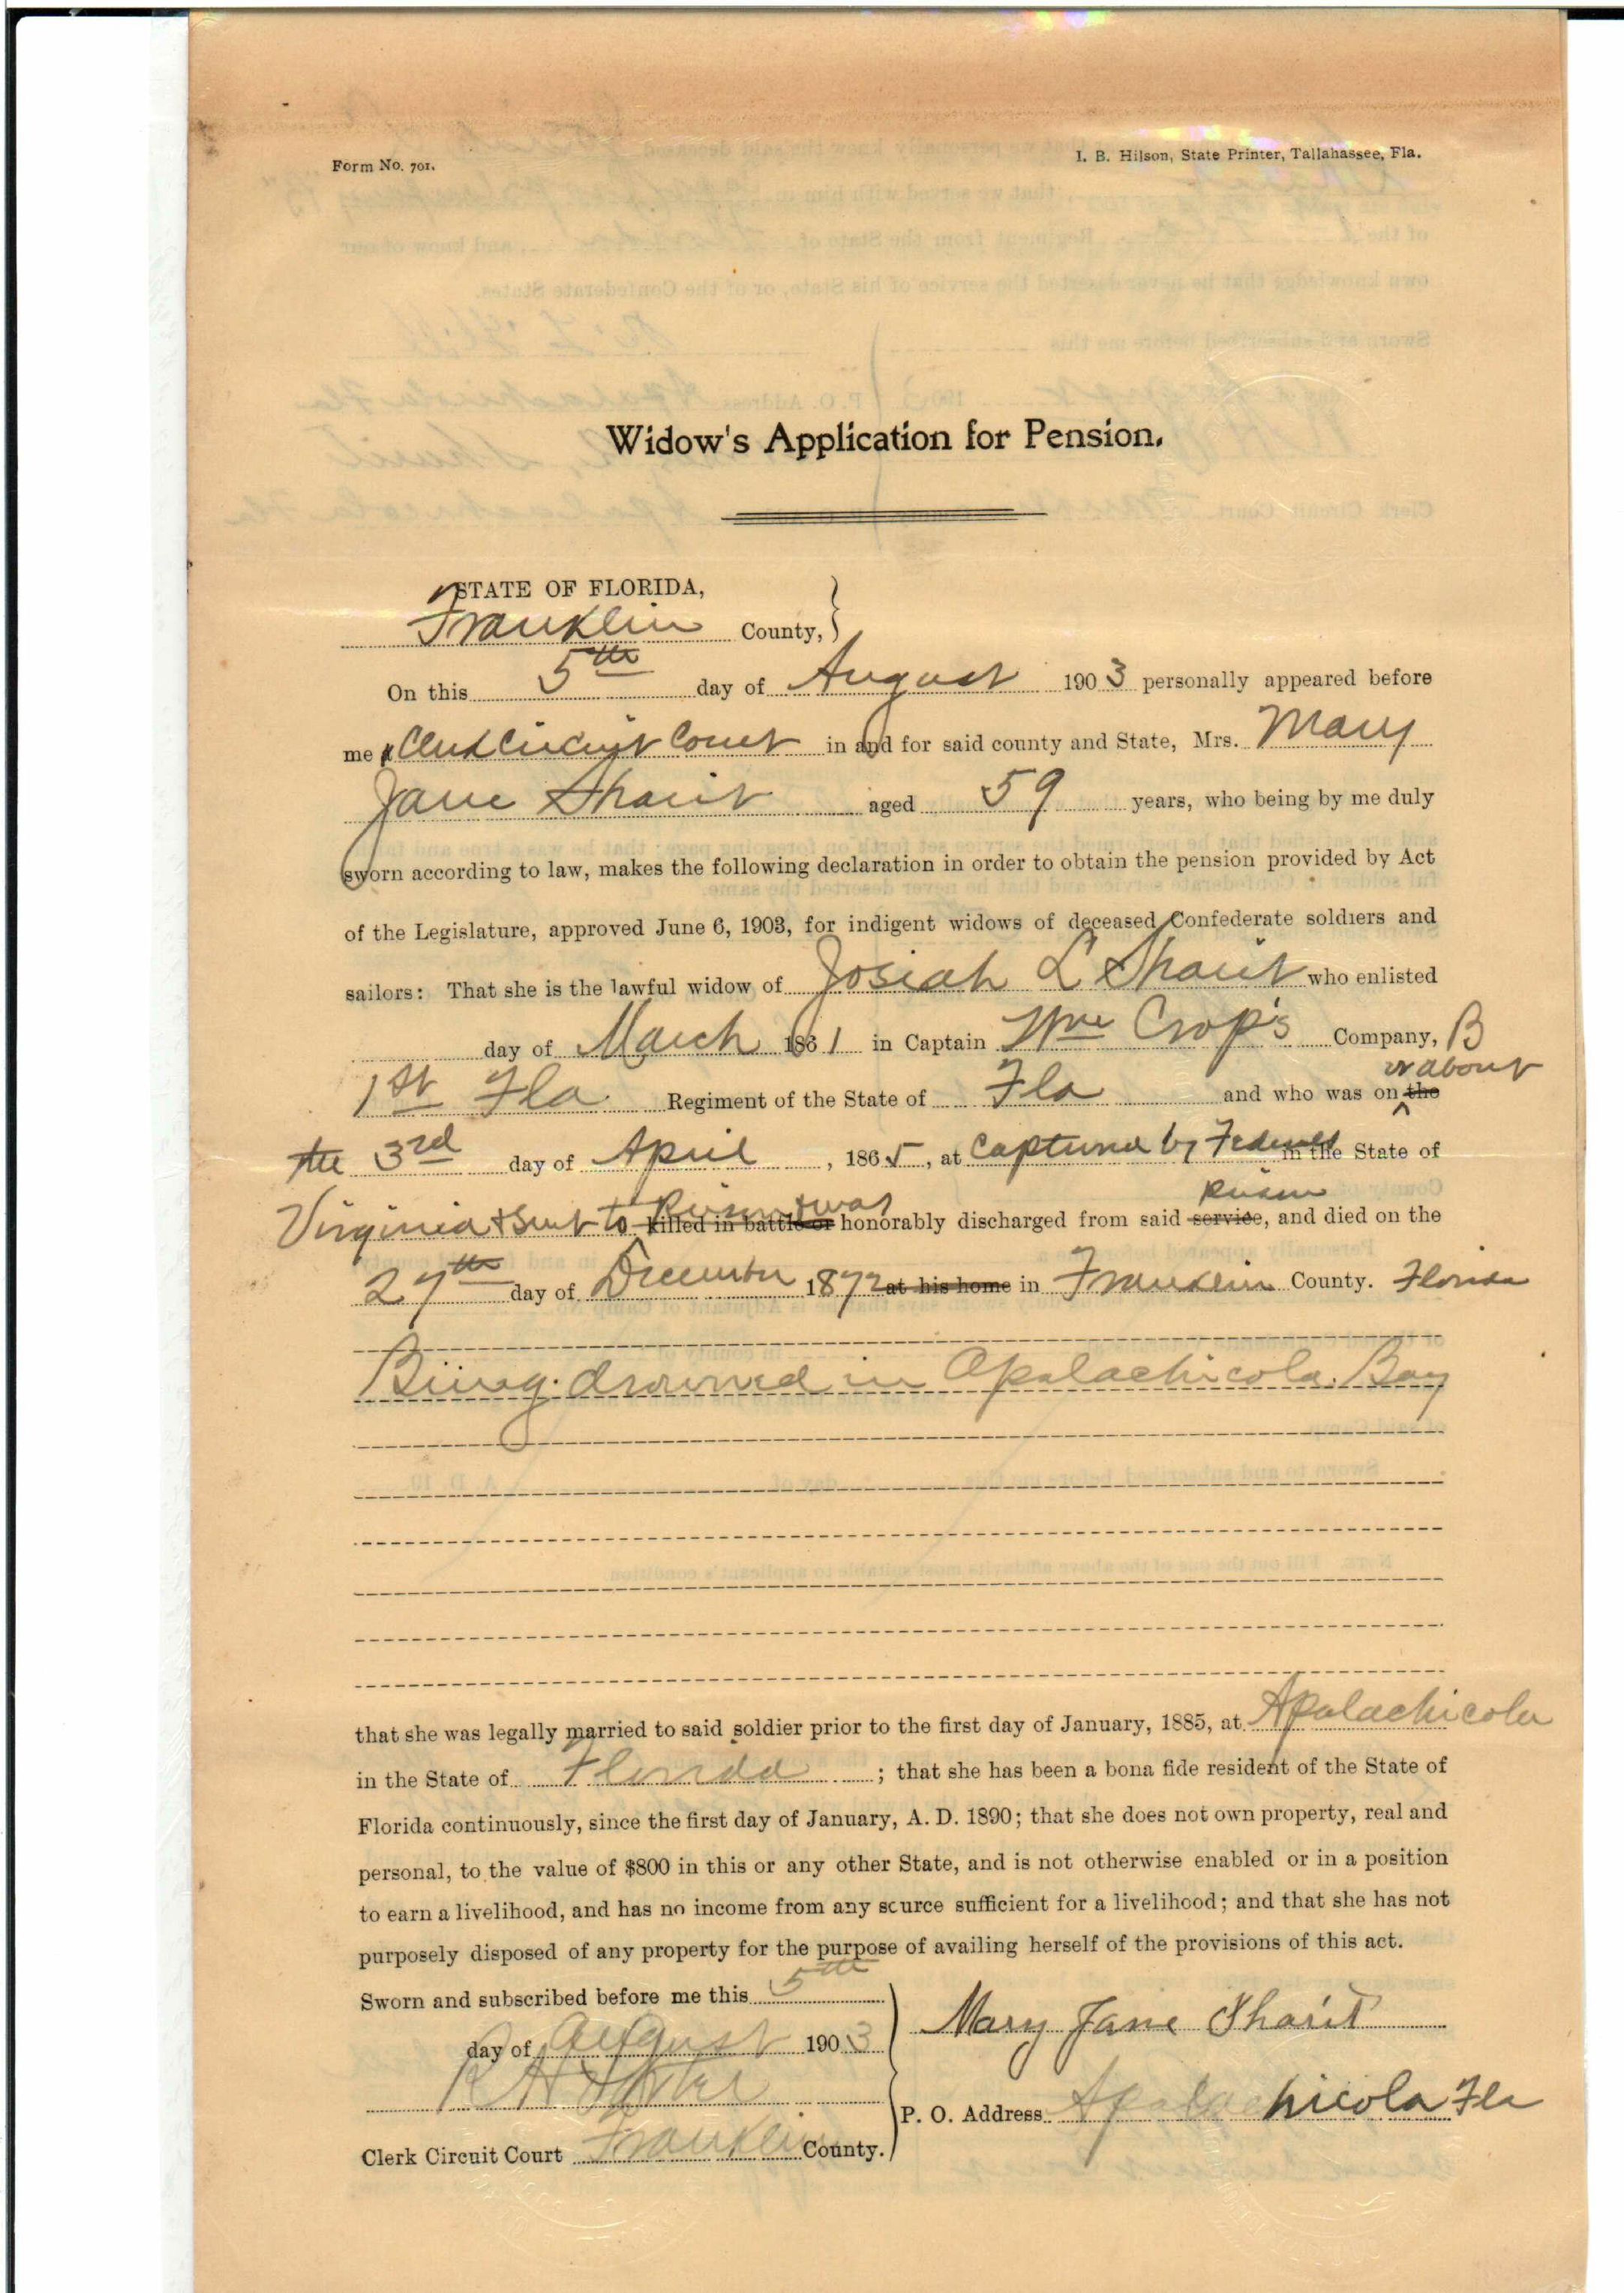 Form No. 701.
I. B. Hilson, State Printer, Tallahassee, Fla.
Widow's Application for Pension.
STATE OF FLORIDA,
Franklin County,
On this 5th day of August 1903 personally appeared before
me Clerk Circuit Court in and for said county and State, Mrs. Mary
Jane Sharit aged 59 years, who being by me duly
sworn according to law, makes the following declaration in order to obtain the pension provided by Act
of the Legislature, approved June 6, 1903, for indigent widows of deceased Confederate soldiers and
sailors: That she is the lawful widow of Josiah L Sharit who enlisted
day of March 1861 in Captain Wm Crop's Company, B
or about
1st Fla Regiment of the State of Fla and who was on the
the 3rd day of April, 1865, at Captured by Federals in the State of
Prison & was prison
Virginia & sent to killed in battle or honorably discharged from said service, and died on the
27th day of December 1872 at his home in Franklin County. Florida
Being drowned in Apalachicola Bay
that she was legally married to said soldier prior to the first day of January, 1885, at Apalachicola
in the State of Florida; that she has been a bona fide resident of the State of
Florida continuously, since the first day of January, A. D. 1890; that she does not own property, real and
personal, to the value of $800 in this or any other State, and is not otherwise enabled or in a position
to earn a livelihood, and has no income from any scurce sufficient for a livelihood; and that she has not
purposely disposed of any property for the purpose of availing herself of the provisions of this act.
Sworn and subscribed before me this 5th
day of August 1903
Mary Jane Sharit
P. O. Address Apalachicola Fla
Clerk Circuit Court Franklin County.